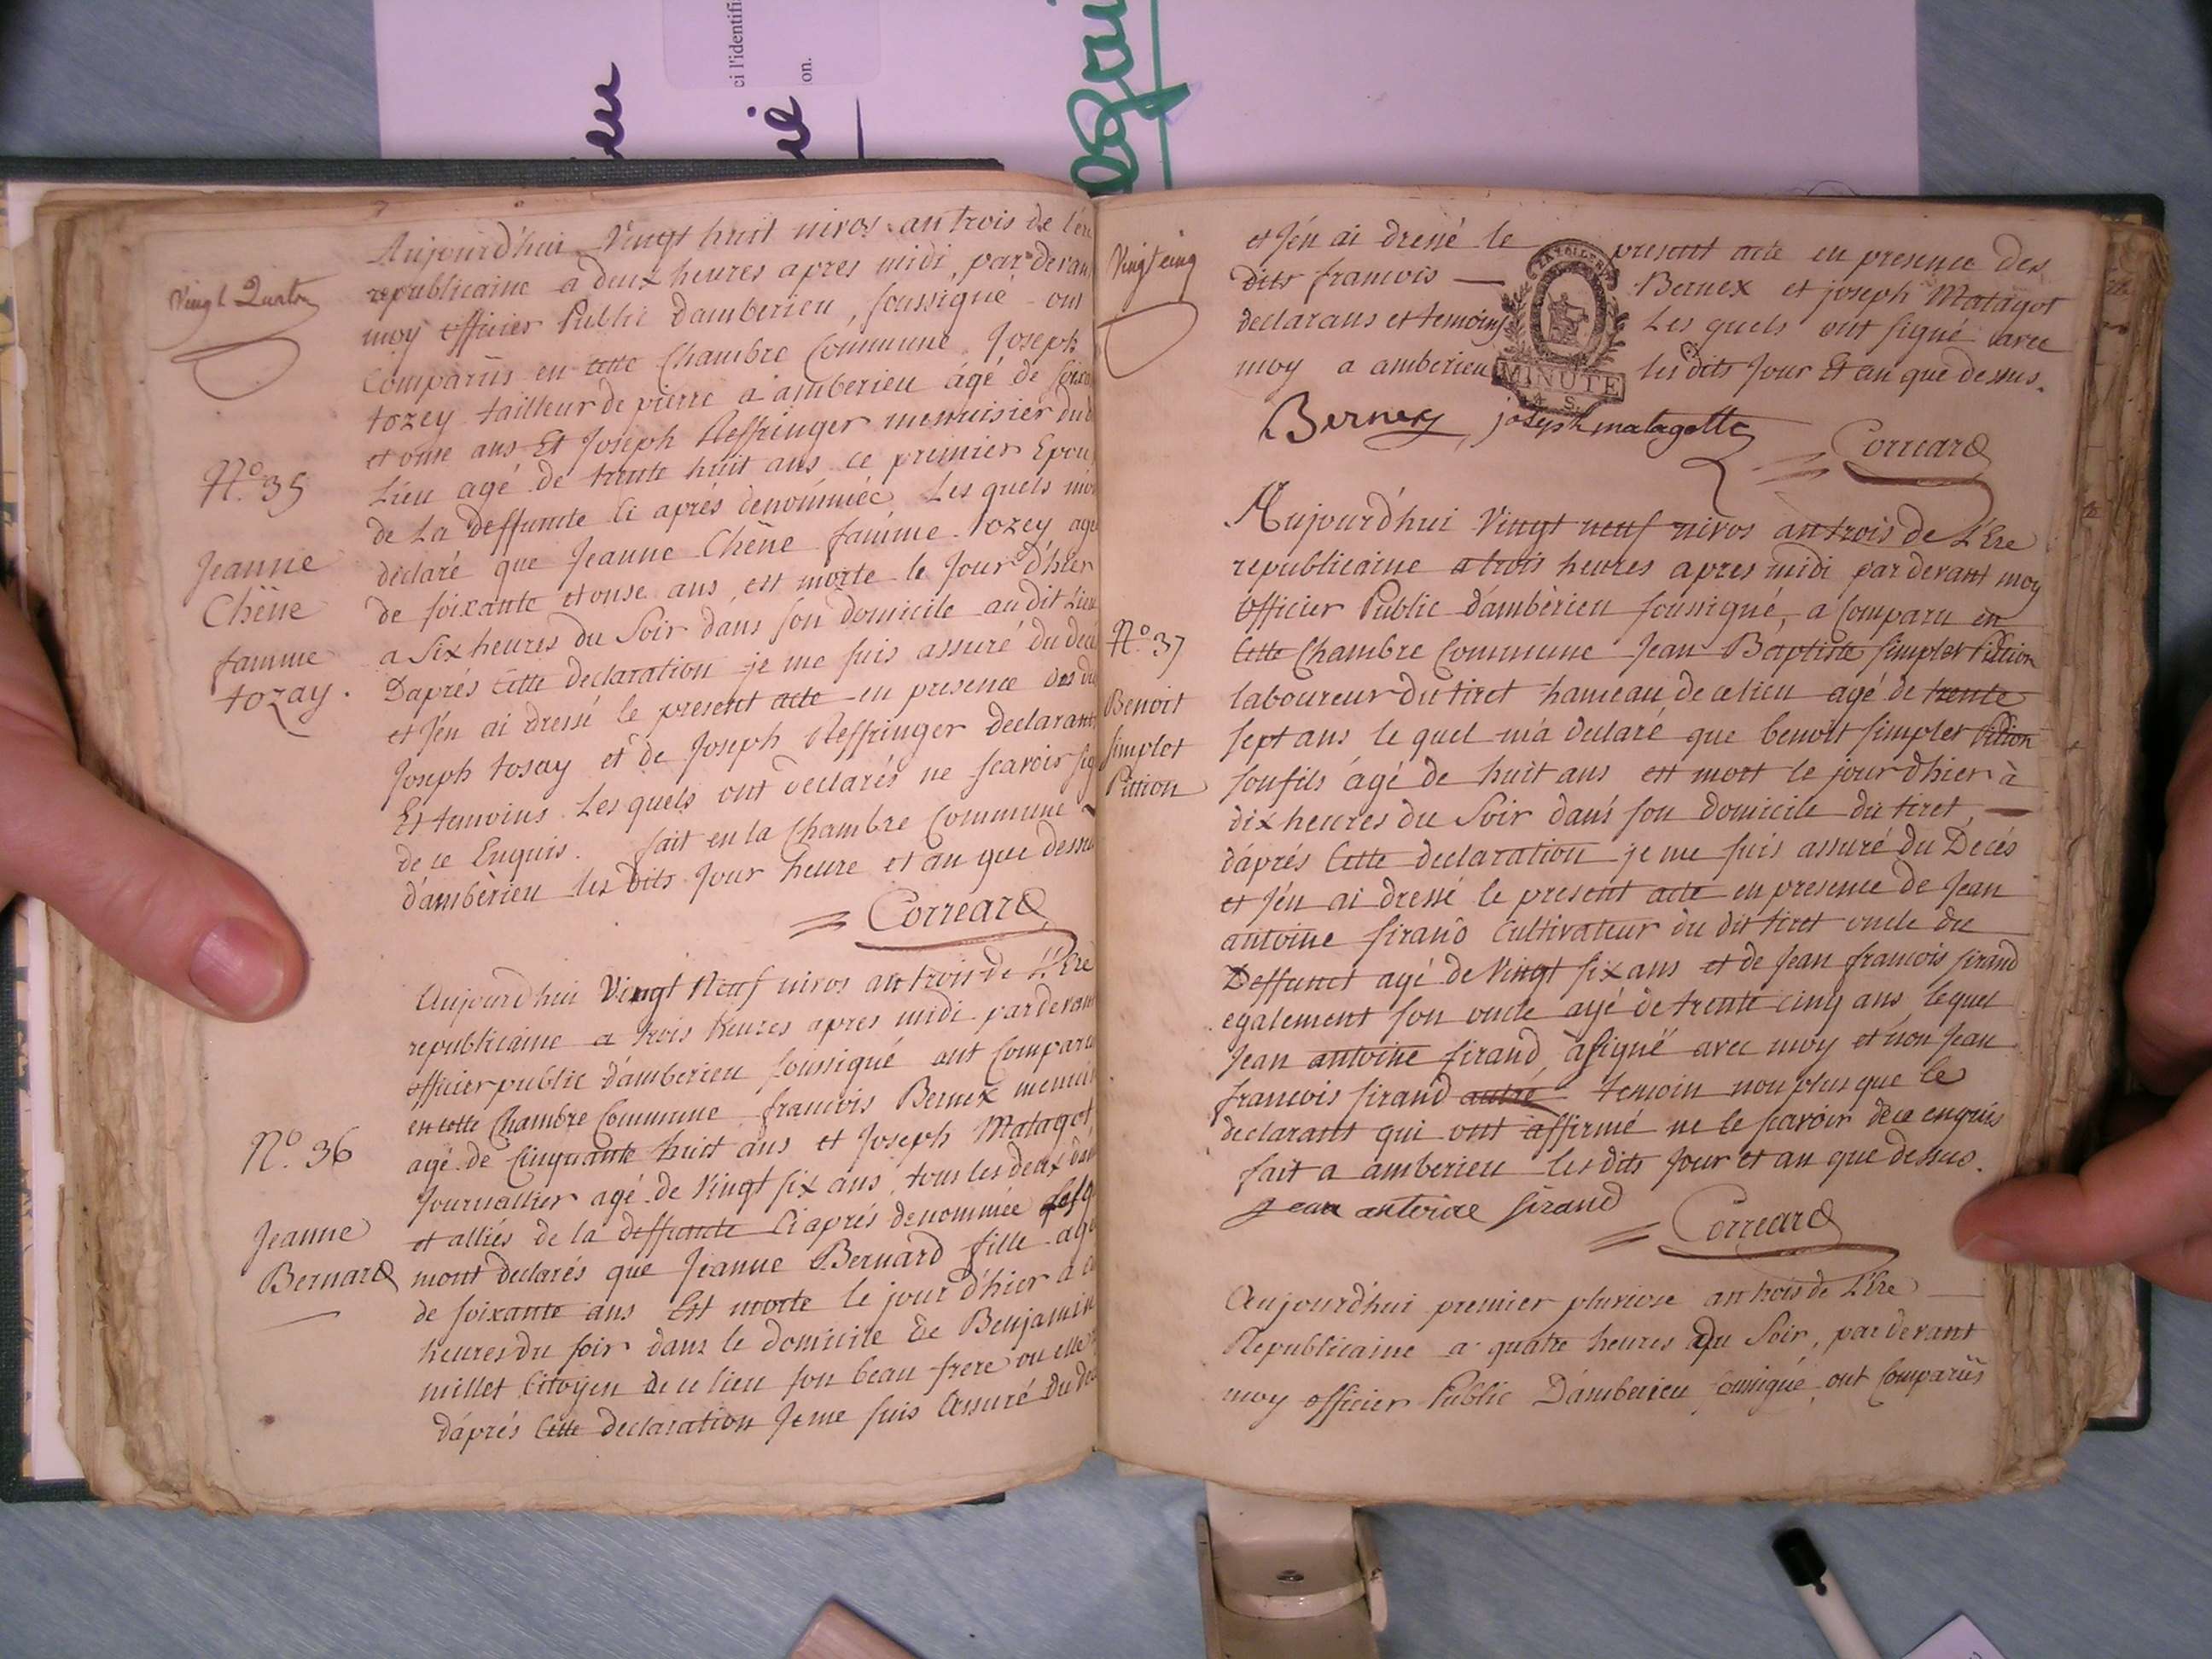 ci l'identifi
on.
Vingt Quatre
Aujourd'hui Vingt huit nivos an trois de l'ère
republicaine a deux heures apres midi, par devan
moy officier Public d'amberieu, soussigné ont
Comparüs en cette Chambre Commune Joseph
tozey tailleur de pierre a amberieu âgé de soixa
et onse ans Et Joseph Reffringer menuisier dud
Lieu agé de trente huit ans ce premier Epou
de La deffuncte ci aprés denommée Les quels m'o
declaré que Jeanne Chêne famme Tozey agé
de soixante et onse ans, est morte le Jour d'hier
a Six heures du Soir dans son domicile au dit Lieu
D'aprés Cette declaration je me suis assuré du decé
et j'en ai dressé le present acte en presence des du
Joseph tosay et de Joseph Reffringer declarants
Et temoins. Les quels ont declarés ne scavoir sig
de ce Enquis. fait en la Chambre Commune
d'amberieu les dits Jour heure et an que dessus
Correard
N.º 35
Jeanne
Chêne
famme
tozay.
Aujourd'hui Vingt Neuf nivos an trois de L'Ere
republicaine a trois heures apres midi par devant
officier public d'amberieu soussigné ont Comparu
en cette Chambre Commune, francois Bernex menuis
agé de Cinquante huit ans et Joseph Matagot
Journallier agé de Vingt six ans, tous les deux
et alliés de la deffuncte Ci aprés denommée
m'ont declarés que Jeanne Bernard fille agé
de soixante ans Est morte le jour d'hier a
heures du soir dans le domicile de Benjamin
millet Citoyen de ce lieu son beau frere ou elle
d'aprés Cette declaration Je me suis Assuré du
N.º 36
Jeanne
Bernard
Vingt cinq
et j'en ai dressé le present acte en presence des
dits francois — Bernex et joseph Matagot
declarans et temoins Les quels ont signé avec
moy a amberieu les dits Jour Et an que dessus.
MINUTE
4 S.
Bernex joseph matagotte
Correard
Aujourd'hui Vingt neuf nivos an trois de L'Ere
republicaine a trois heures apres midi par devant moy
officier Public d'amberieu soussigné, a Comparu en
Cette Chambre Commune Jean Baptiste simplet Pittion
laboureur du tiret hameau de ce lieu agé de trente
sept ans le quel m'a declaré que benoit simplet Pittion
son fils âgé de huit ans est mort le jour d'hier à
dix heures du Soir dans son domicile du tiret, —
d'aprés Cette declaration je me suis assuré du Decés
et j'en ai dressé le present acte en presence de Jean
antoine sirand Cultivateur du dit tiret oncle du
Deffunct agé de Vingt six ans et de Jean francois sirand
egalement son oncle agé de trente cinq ans lequel
Jean antoine sirand, a signé avec moy et non Jean
francois sirand autre temoin non plus que le
declarant qui ont affirmé ne le scavoir de ce enquis
fait a amberieu les dits Jour et an que dessus.
Jean antoine sirand
Correard
N.º 37
Benoit
simplet
Pittion
Aujourd'hui premier pluviose an trois de L'Ere
Republicaine a quatre heures du Soir, par devant
moy officier Public D'amberieu soussigné, ont Comparüs